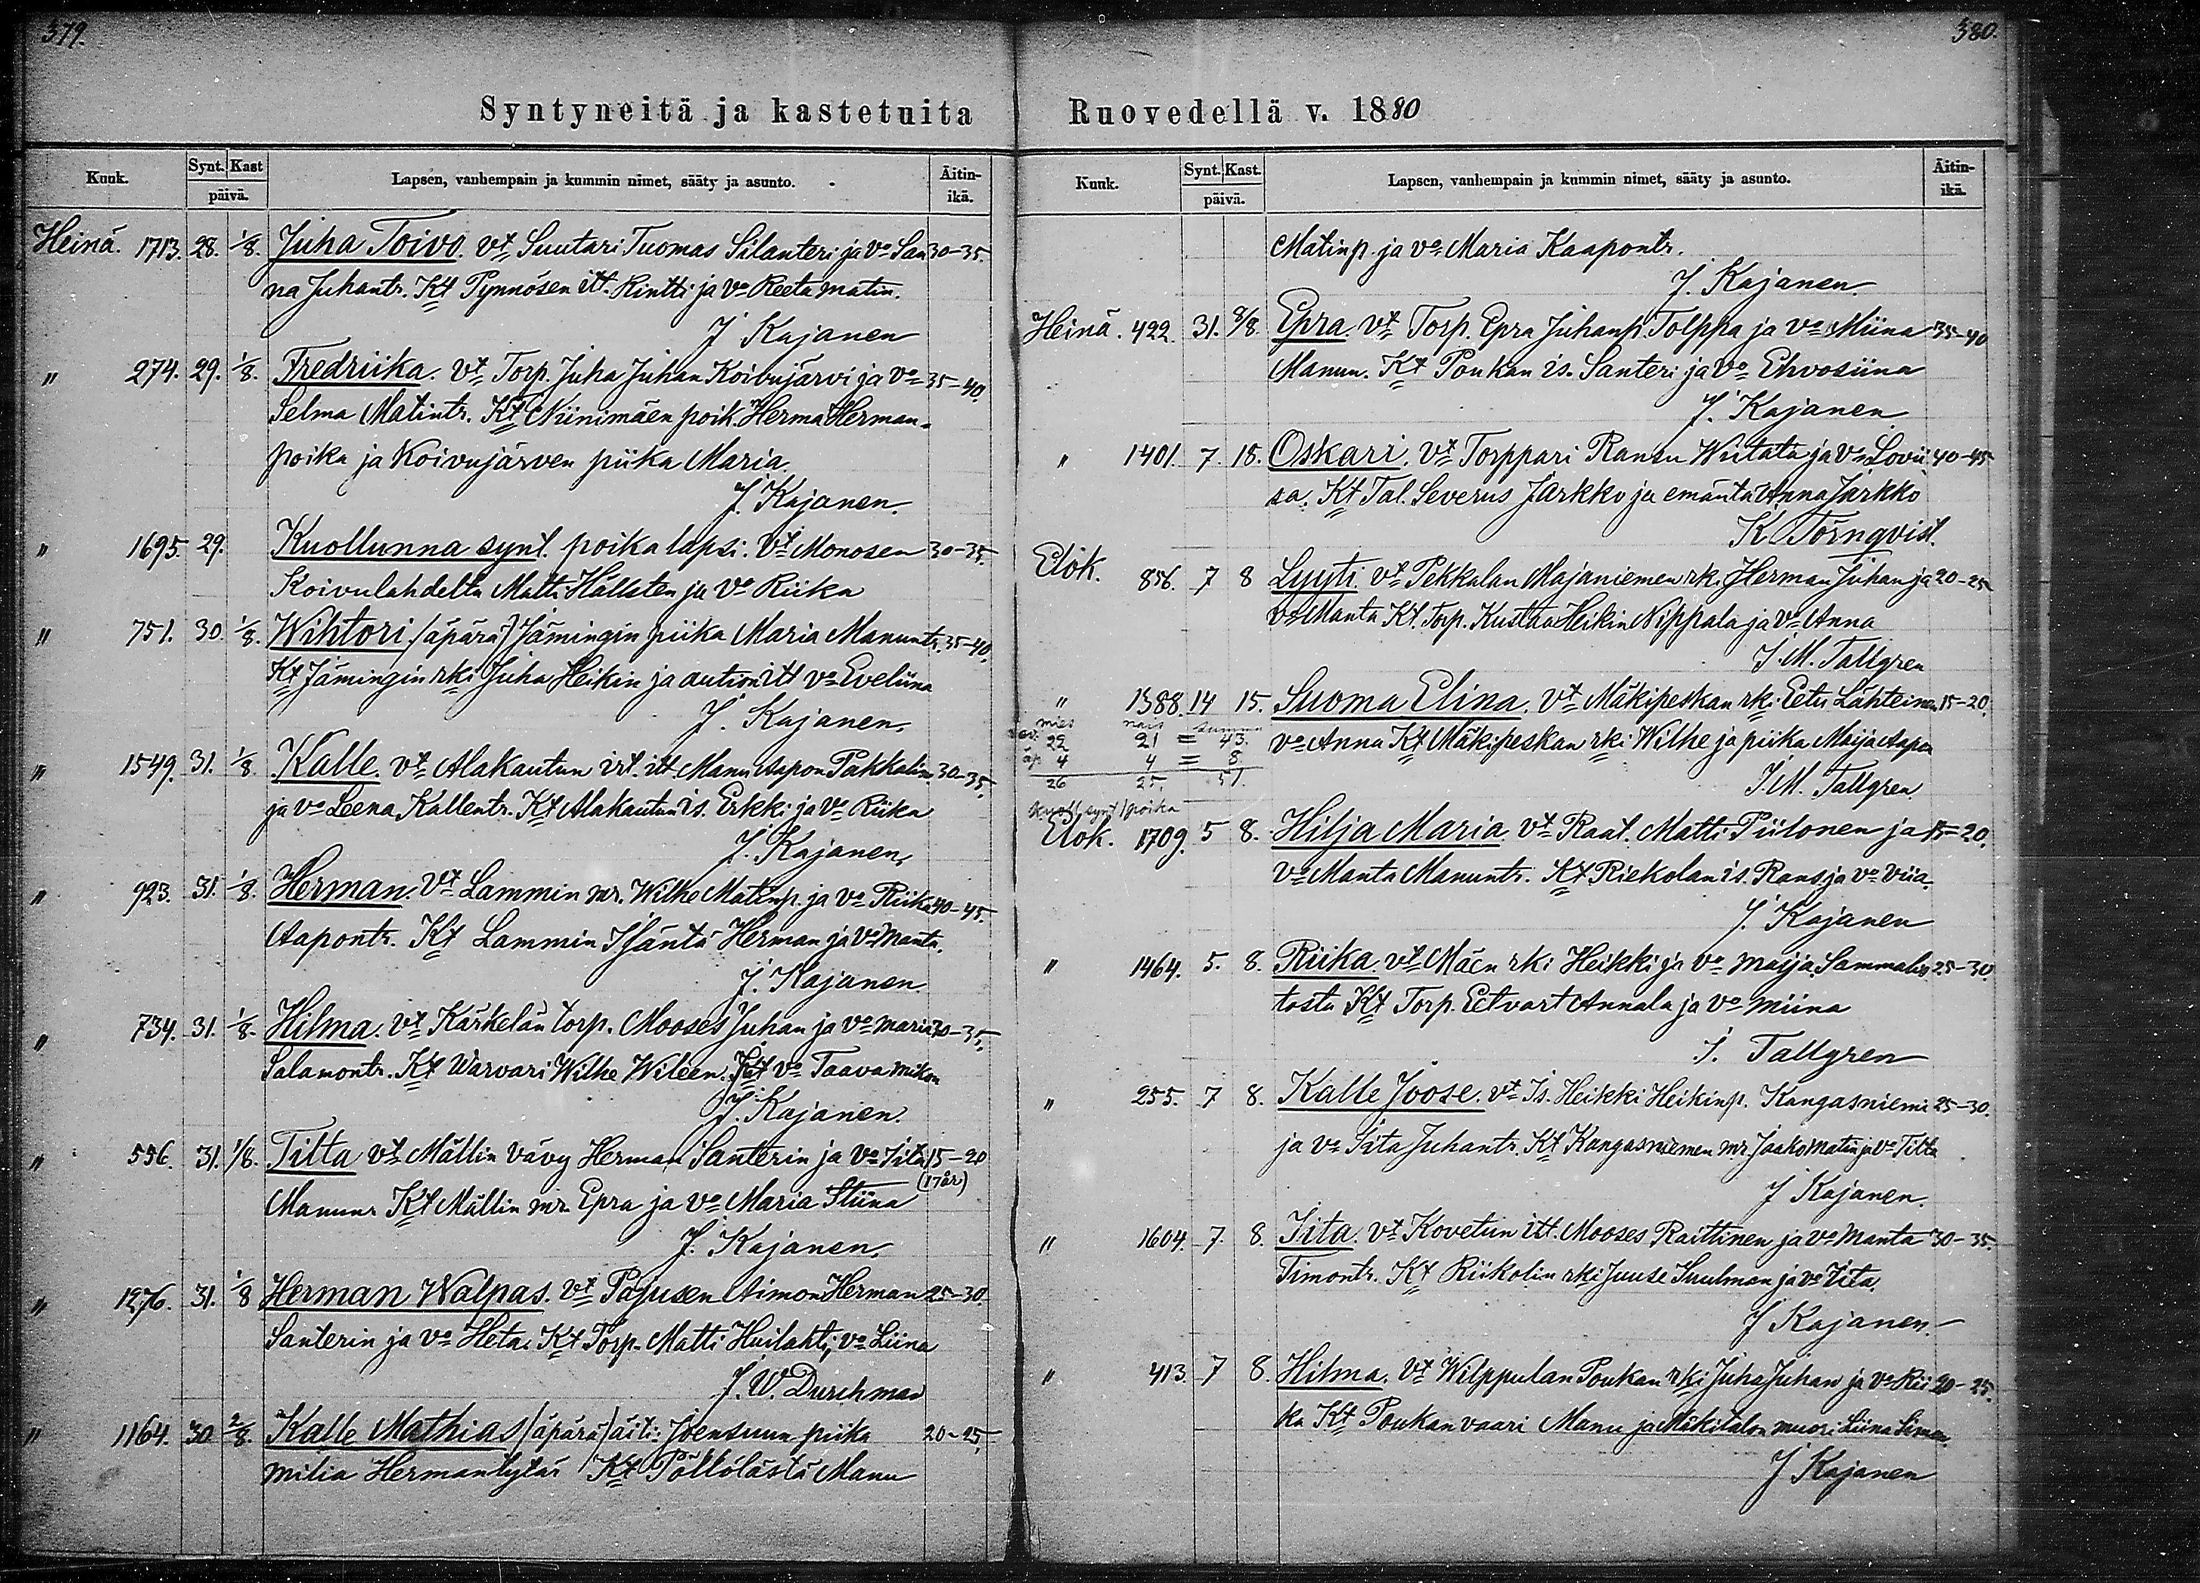 379.
Syntyneitä ja kastetuita
Kuuk. Synt. Kast päivä. Lapsen, vanhempain ja kummin nimet, sääty ja asunto. Äitin-ikä.
Heinä. 1713. 28. 1/8. Juha Toivo. vt Suutari Tuomas Silanteri ja vo San 30-35.
na Juhantr. Kt Pynnösen itt. Rintti ja vo Reeta Matin.
J Kajanen
" 274. 29. 1/8. Fredriika. vt Torp. Juha Juhan Koivujärvi ja vo 35-40.
Selma Matintr. Kt Niinimäen poik. Herma Herman-
poika ja Koivujärven piika Maria.
J. Kajanen.
" 1695. 29. Kuollunna synt. poika lapsi. vt Monosen 30-35.
Koivulahdelta Matti Hällsten ja vo Riika
" 751. 30. 1/8. Wihtori (äpärä) Jämingin piika Maria Manuntr. 35-40.
Kt Jämingin rki Juha Heikin ja aution itt vo Eveliina
J. Kajanen.
" 1549. 31. 1/8. Kalle. vt Alakautun irt. itt. Manu Aapon Pakkalin 30-35.
ja vo Leena Kallentr. Kt Alakautun is. Erkki ja vo Riika
J. Kajanen.
" 923. 31. 1/8. Herman. vt Lammin mr. Wilhe Matinp. ja vo Riika 40-45.
Aapontr. Kt Lammin Isäntä Herman ja vo Manta.
J. Kajanen.
" 734. 31. 1/8. Hilma. vt Kärkelän torp. Mooses Juhan ja vo Maria 30-35.
Salamontr. Kt Warvari Wilhe Wileen. vo Taava Mikon
J. Kajanen.
" 556. 31. 1/8. Tilta vt Mällin vävy Herman Santerin ja vo Iita 15-20
(17 år)
Manun Kt Mällin mr. Epra ja vo Maria Stiina
J. Kajanen.
" 1276. 31. 1/8 Herman Walpas. vt Papusen Aimon Herman 25-30.
Santerin ja vo Heta. Kt Torp. Matti Huilahti, vo Liina
J. W. Durchman
" 1164. 30 2/8. Kalle Mathias (äpärä) äiti: Joensuun piika 20-25
Milia Hermantytär Kt Pöllölästä Manu
380.
Ruovedellä v. 1880
Kuuk. Synt. Kast. päivä. Lapsen, vanhempain ja kummin nimet, sääty ja asunto. Äitin-ikä.
Matinp. ja vo Maria Kaapontr.
J. Kajanen.
Heinä. 422. 31. 8/8. Epra. vt Torp. Epra Juhanp. Tolppa ja vo Miina 35-40
Manun. Kt Poukan is. Santeri ja vo Ehvosiina
J. Kajanen
" 1401. 7. 15. Oskari. vt Torppari Ransu Wiitala ja vo Lovii 40-45
sa. Kt Tal. Severus Jarkko ja emäntä Anna Jarkko
K Törnqvist.
Elok. 856. 7 8 Lyyti. vt Pekkalan Majaniemen rk. Herman Juhan ja 20-25
vo Manta Kt. Torp. Kustaa Heikin Nippala ja vo Anna
J. M. Tallgren
" 1388. 14 15. Suoma Elina. vt Mäkipeskan rki Eetu Lähteinen 15-20.
mies nais summa
22 21 = 43. vo Anna Kt Mäkipeskan rki Wilhe ja piika Maija Aapen
äp. 4 4 = 8
26 25. 51. J. M. Tallgren.
Kuoll. synt. 1 poika
Elok. 1709. 5 8. Hilja Maria. vt Raat. Matti Piilonen ja 15-20.
vo Manta Manuntr. Kt Riekolan is. Rans ja vo Viia.
J. Kajanen
" 1464. 5. 8. Riika. vt Mäen rki Heikki ja vo Maija Sammalis 25-30.
tosta Kt Torp. Eetvart Annala ja vo Miina
J. Tallgren
" 255. 7 8. Kalle Joose. vt Is. Heikki Heikinp. Kangasniemi 25-30.
ja vo Iita Juhantr. Kt Kangasniemen mr. Jaako Matin ja vo Tilta
J Kajanen.
" 1604. 7. 8. Iita. vt Kovetun itt. Mooses Raittinen ja vo Manta 30-35.
Timontr. Kt Riikolin rki Juuse Suulman ja vo Iita.
J Kajanen.
" 413. 7 8. Hilma. vt Wilppulan Poukan rki Juha Juhan ja vo Rii 20-25.
ka Kt Poukan vaari Manu ja Mäkitalon muori Liina Simon.
J Kajanen